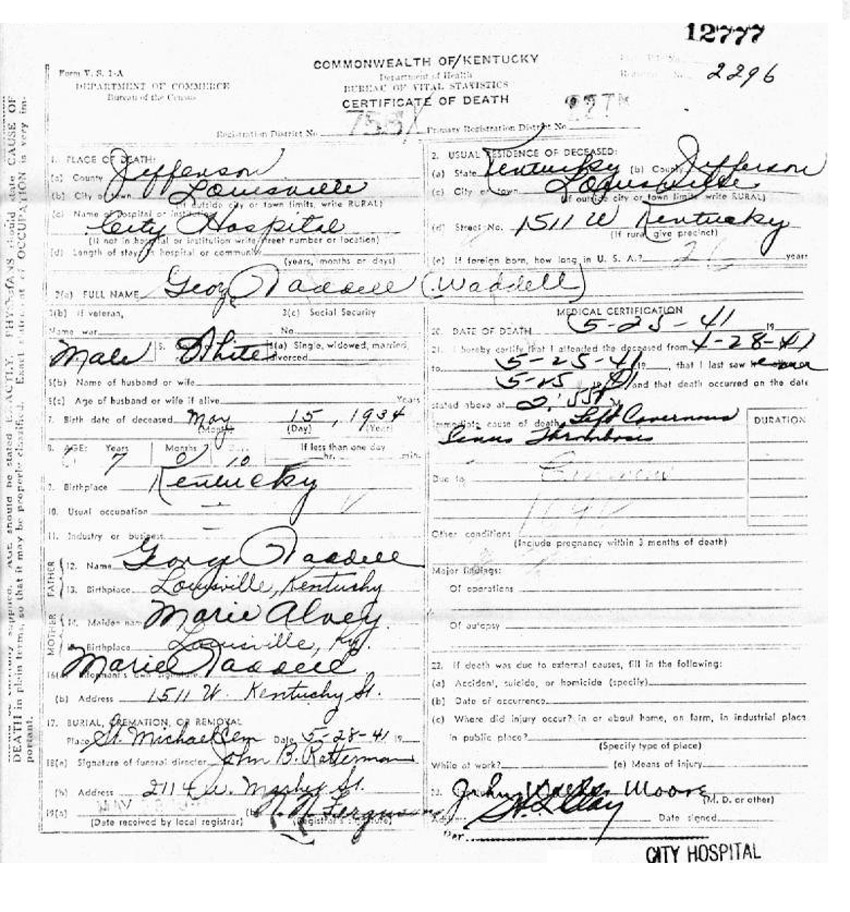 12777
COMMONWEALTH OF KENTUCKY
Form V. S. 1-A
DEPARTMENT OF COMMERCE
Bureau of the Census
Department of Health
BUREAU OF VITAL STATISTICS
CERTIFICATE OF DEATH
2296
Registration District No.
Primary Registration District No.
1. PLACE OF DEATH:
(a) County Jefferson
(b) City or town Louisville
(If outside city or town limits, write RURAL)
(c) Name of hospital or institution
City Hospital
(If not in hospital or institution write street number or location)
(d) Length of stay in hospital or community
(years, months or days)
2. USUAL RESIDENCE OF DECEASED:
(a) State Kentucky (b) County Jefferson
(c) City or town Louisville
(If outside city or town limits, write RURAL)
(d) Street No. 1511 W Kentucky
(If rural give precinct)
(e) If foreign born, how long in U. S. A.? years
3(a) FULL NAME George Waddell (Waddell)
3(b) If veteran,
Name war
3(c) Social Security
No.
Male White
6(a) Single, widowed, married,
divorced
6(b) Name of husband or wife
6(c) Age of husband or wife if alive Years
7. Birth date of deceased May 15, 1934
(Month) (Day) (Year)
8. AGE: Years Months If less than one day
7 0 10 hr. min.
9. Birthplace Kentucky
10. Usual occupation
11. Industry or business
FATHER
12. Name George Waddell
13. Birthplace Louisville, Kentucky
MOTHER
14. Maiden name Marie Alvey
15. Birthplace Louisville, Ky.
Marie Waddell
16(a) Informant's own signature
(b) Address 1511 W. Kentucky St.
17. BURIAL, CREMATION, OR REMOVAL
Place St. Michael Cem Date 5-28-41 19
18(a) Signature of funeral director John B. Ratterman
(b) Address 2114 W. Market St.
19(a) (b)
(Date received by local registrar) (Registrar's signature)
MEDICAL CERTIFICATION
20. DATE OF DEATH 5-25-41 19
21. I hereby certify that I attended the deceased from 4-28-41
to 5-25-41 19 , that I last saw
5-25 1941 and that death occurred on the date
stated above at
Immediate cause of death Left Cavernous
Sinus Thrombosis
DURATION
Due to
Other conditions
(Include pregnancy within 3 months of death)
Major findings:
Of operations
Of autopsy
22. If death was due to external causes, fill in the following:
(a) Accident, suicide, or homicide (specify)
(b) Date of occurrence
(c) Where did injury occur? in or about home, on farm, in industrial place
in public place?
(Specify type of place)
While at work? (e) Means of injury
23. John Walker Moore
(M. D. or other)
Date signed
CITY HOSPITAL